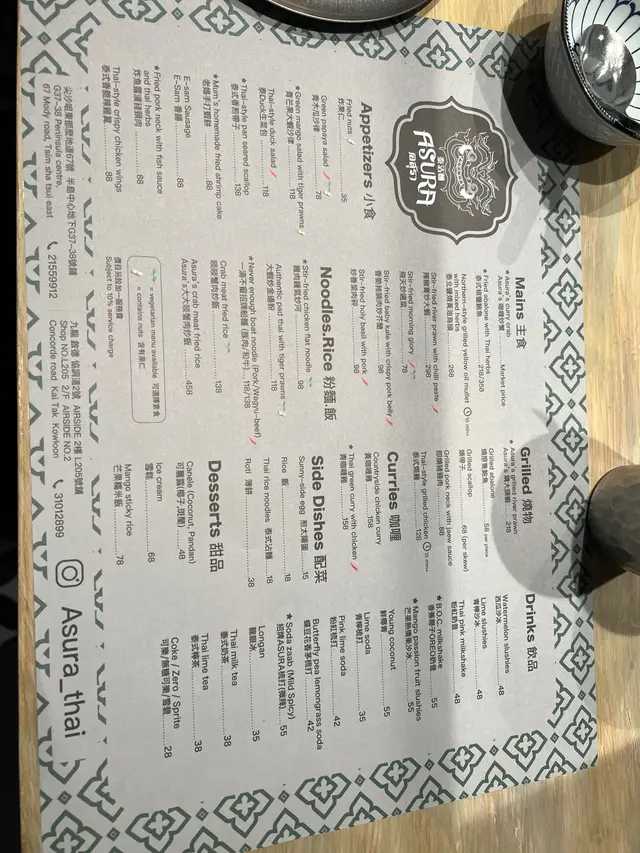 泰沾麵
ASURA
อสุรา
Appetizers 小食
Fried nuts
炸果仁 35
Green papaya salad
青木瓜沙律 78
★Green mango salad with tiger prawns
青芒果大蝦沙律 118
Thai-style duck salad
泰Duck生菜包 118
★Thai-style pan seared scallop
泰式香煎帶子 138
★Mum's homemade fried shrimp cake
老媽手打蝦餅 88
E-sarn Sausage
E-Sarn 香腸 88
★Fried pork neck with fish sauce
and thai herbs
炸魚露豬頸肉 88
Thai-style crispy chicken wings
泰式香脆辣雞翼 88
Mains 主食
★Asura's curry crab
Asura's 咖喱炒蟹 Market price
★Fried abalone with Thai herbs
泰式椒鹽鮑魚 218/358
Northern-style grilled yellow oil mullet
with mixed herbs 15 mins+
268
Stir-fried river prawn with chilli paste
辣椒膏炒大蝦 298
Stir-fried morning glory
飛天炒通菜 78
Stir-fried baby kale with crispy pork belly
98
Stir-fried holy basil with pork
炒香葉肉碎 98
Noodles.Rice 粉麵飯
★Stir-fried chicken flat noodle
雞肉鑊氣炒河 98
Authentic pad thai with tiger prawns
大蝦炒金邊粉 118
★Never enough boat noodle (Pork/Wagyu-beef)
一滴不留招牌船麵 (豚肉/和牛) 118/138
Crab meat fried rice
啖啖蟹肉炒飯 138
Asura's crab meat fried rice
Asura's大大啖蟹肉炒飯 458
= vegetarian menu available 可選擇素食
= contains nuts 含有果仁
價目另設加一服務費
Subject to 10% service charge
Grilled 燒物
★Asura's grilled river prawn
Asura's 燒大頭蝦 218
Grilled abalone
58 per piece
Grilled scallop
燒帶子 68 (per skew)
Grilled pork neck with jaew sauce
即燒豬頸肉 88
Thai-style grilled chicken 15 mins+
泰式燒雞 128
Curries 咖喱
Countryside chicken curry
黃咖喱雞 158
★Thai green curry with chicken
青咖喱雞 158
Side Dishes 配菜
Sunny-side egg 煎太陽蛋 15
Rice 飯 18
Thai rice noodles 泰式沾麵 18
Roti 薄餅 38
Desserts 甜品
Canele (Coconut, Pandan)
可麗露(椰子,斑蘭) 48
Ice cream
雪糕 68
Mango sticky rice
芒果糯米飯 78
Drinks 飲品
Watermelon slushies
西瓜沙冰 48
Lime slushies
青檸沙冰 48
Thai pink milkshake
粉紅奶昔 48
★B.O.C. milkshake
香蕉椰子OREO奶昔 55
★Mango passion fruit slushies
芒果熱情果沙冰 55
Young coconut
鮮椰青 55
Lime soda
青檸梳打 35
Pink lime soda
粉紅梳打 42
Butterfly pea lemongrass soda
蝶豆花香茅梳打 42
★Soda zaab (Mild Spicy)
招牌ASURA梳打(微辣) 55
Longan
龍眼冰 35
Thai milk tea
泰式奶茶 38
Thai lime tea
泰式檸茶 38
Coke / Zero / Sprite
可樂/無糖可樂/雪碧 28
尖沙咀東部麼地道67號 半島中心地下G37-38號舖
G37-38 Peninsula centre,
67 Mody road, Tsim sha tsui east
21559912
九龍 啟德 協調道2號 AIRSIDE 2樓 L205號舖
Shop NO.L205 2/F AIRSIDE NO.2
Concorde road Kai Tak Kowloon
31012899
Asura_thai